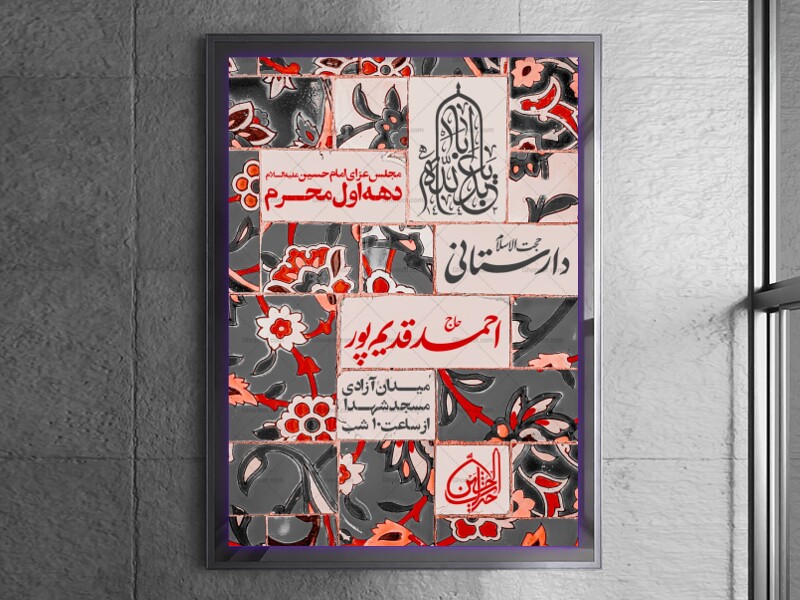 یا اباعبدالله
مجلس عزای امام حسین علیه‌السلام
دهه اول محرم
حجت الاسلام
دارستانی
حاج
احمد قدیم پور
میدان آزادی
مسجد شهدا
از ساعت ۱۰ شب